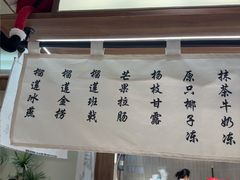 抹茶牛奶冻
原只椰子冻
杨枝甘露
芒果拉肠
榴莲班戟
榴莲金捞
榴莲冰燕